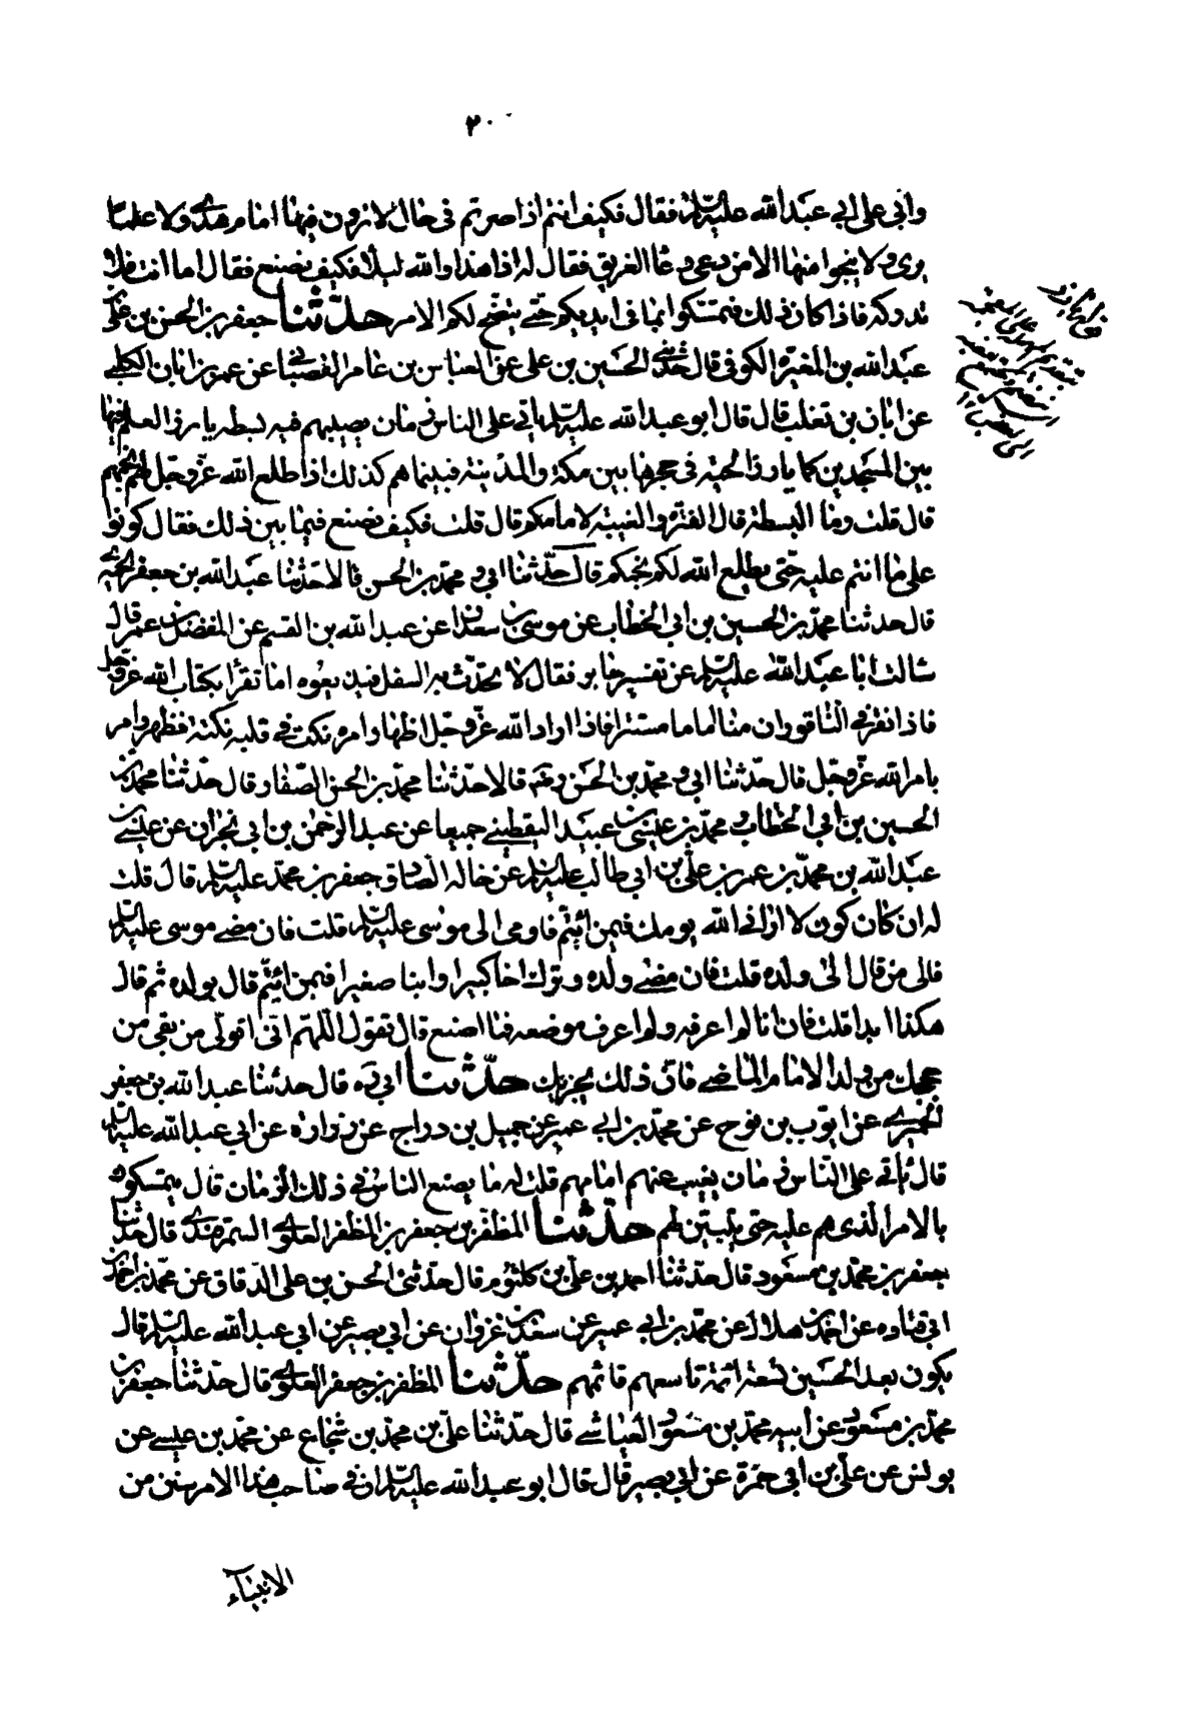 ٢٠٠
وابي على ابي عبد الله عليه السلام فقال فكيف انتم اذا صرتم في حال لا ترون فيها امام هدى ولا علما
يرى ولا ينجوا منها الا من دعى دعا الغريق فقال له اذا هذا والله ليلا فكيف نصنع فقال اما انت فلا
تدركه فاذا كان ذلك فتمسكوا بما في ايديكم حتى يتضح لكم الامر حدثنا جعفر بن الحسن بن علي
عبد الله بن المغيره الكوفي قال حدثني الحسين بن علي عن العباس بن عامر القصباني عن عمر بن ابان الكلبي
عن ابان بن تغلب قال قال ابو عبد الله عليه السلام ياتي على الناس زمان يصيبهم فيه بسطه يارز العلم فيها
بين المسجدين كما يارز الحية في جحرها بين مكة والمدينة فبينما هم كذلك اذا طلع الله عز وجل لهم نجمهم
قال قلت وما البسطة قال الفترة والغيبة لامامكم قال قلت فكيف نصنع فيما بين ذلك فقال كونوا
على ما انتم عليه حتى يطلع الله لكم نجمكم قال حدثنا ابي و محمد بن الحسن قالا حدثنا عبد الله بن جعفر الحميري
قال حدثنا محمد بن الحسين بن ابي الخطاب عن موسى بن سعدان عن عبد الله بن القسم عن المفضل بن عمر قال
سالت ابا عبد الله عليه السلام عن تفسير جابر فقال لا تحدث به السفل فيذيعوه اما تقرأ بكتاب الله عز وجل
فاذا نقر في الناقور ان منا اماما مستترا فاذا اراد الله عز وجل اظهار امره نكت في قلبه نكتة فظهر وامر
بامر الله عز وجل قال حدثنا ابي و محمد بن الحسن رحمه قالا حدثنا محمد بن الحسن الصفار قال حدثنا محمد بن
الحسين بن ابي الخطاب و محمد بن عيسى بن عبيد اليقطيني جميعا عن عبد الرحمن بن ابي نجران عن عيسى بن
عبد الله بن محمد بن عمر بن علي بن ابي طالب عليه السلام عن خاله الصادق جعفر بن محمد عليه السلام قال قلت
له ان كان كون لا اراني الله يومك فبمن ائتم فاومى الى موسى عليه السلام قلت فان مضى موسى عليه السلام
فالى من قال الى ولده قلت فان مضى ولده وترك اخا كبيرا وابنا صغيرا فبمن ائتم قال بولده ثم قال
هكذا ابدا قلت فان انا لم اعرفه ولم اعرف موضعه فما اصنع قال تقول اللهم اني اتولى من بقي من
حججك من ولد الامام الماضي فان ذلك يجزيك حدثنا ابي ره قال حدثنا عبد الله بن جعفر
الحميري عن ايوب بن نوح عن محمد بن ابي عمير عن جميل بن دراج عن زراره عن ابي عبد الله عليه السلام
قال ياتي على الناس زمان يغيب عنهم امامهم قلت له ما يصنع الناس في ذلك الزمان قال يتمسكون
بالامر الذي هم عليه حتى يتبين لهم حدثنا المظفر بن جعفر بن المظفر العلوي السمرقندي قال حدثنا
جعفر بن محمد بن مسعود قال حدثنا احمد بن علي بن كلثوم قال حدثني الحسن بن علي الدقاق عن محمد بن احمد بن
ابي قتاده عن احمد بن هلال عن محمد بن ابي عمير عن سعيد بن غزوان عن ابي بصير عن ابي عبد الله عليه السلام قال
يكون بعد الحسين تسعة ائمة تاسعهم قائمهم حدثنا المظفر بن جعفر العلوي قال حدثنا جعفر بن
محمد بن مسعود عن ابيه محمد بن مسعود العياشي قال حدثنا علي بن محمد بن شجاع عن محمد بن عيسى عن
يونس عن علي بن ابي حمزة عن ابي بصير قال قال ابو عبد الله عليه السلام ان في صاحب هذا الامر سنن من
الانبياء